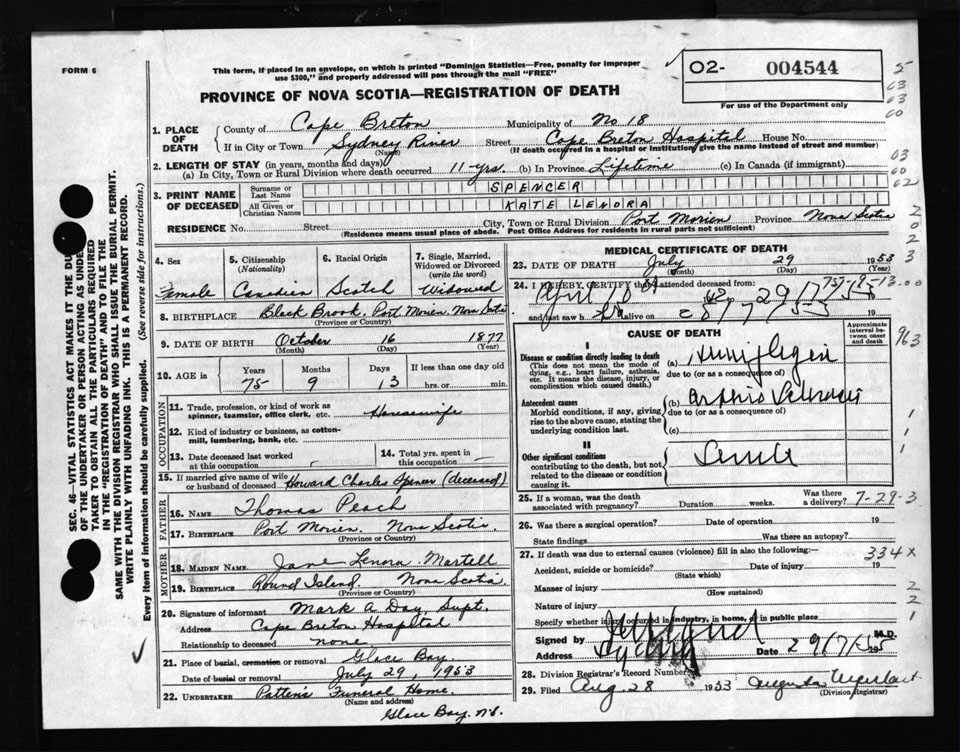 FORM 6
This form, if placed in an envelope, on which is printed "Dominion Statistics—Free, penalty for improper
use $300," and properly addressed will pass through the mail "FREE"
O2- 004544
For use of the Department only
PROVINCE OF NOVA SCOTIA—REGISTRATION OF DEATH
1. PLACE OF DEATH
County of Cape Breton Municipality of No 18
If in City or Town Sydney River Street Cape Breton Hospital House No.
(Name) (If death occurred in a hospital or institution, give the name instead of street and number)
2. LENGTH OF STAY (in years, months and days)
(a) In City, Town or Rural Division where death occurred 11-yrs. (b) In Province Lifetime (c) In Canada (if immigrant)
3. PRINT NAME OF DECEASED
Surname or Last Name SPENCER
All Given or Christian Names KATE LENORA
RESIDENCE No. Street City, Town or Rural Division Port Morien Province Nova Scotia
(Residence means usual place of abode. Post Office Address for residents in rural parts not sufficient)
4. Sex
Female
5. Citizenship (Nationality)
Canadian
6. Racial Origin
Scotch
7. Single, Married, Widowed or Divorced (write the word)
Widowed
8. BIRTHPLACE Black Brook, Port Morien, Nova Scotia
(Province or Country)
9. DATE OF BIRTH October 16 1877
(Month) (Day) (Year)
10. AGE in Years Months Days If less than one day old
75 9 13 hrs. or min.
OCCUPATION
11. Trade, profession, or kind of work as
spinner, teamster, office clerk, etc. Housewife
12. Kind of industry or business, as cotton-
mill, lumbering, bank, etc.
13. Date deceased last worked
at this occupation
14. Total yrs. spent in
this occupation
15. If married give name of wife
or husband of deceased Howard Charles Spencer (deceased)
FATHER
16. NAME Thomas Peach
17. BIRTHPLACE Port Morien, Nova Scotia
(Province or Country)
MOTHER
18. MAIDEN NAME Jane Lenora Martell
19. BIRTHPLACE Round Island, Nova Scotia
(Province or Country)
20. Signature of informant Mark A Day, Supt.
Address Cape Breton Hospital
Relationship to deceased none
21. Place of burial, cremation or removal Glace Bay
Date of burial or removal July 29, 1953
22. UNDERTAKER Patten's Funeral Home.
(Name and address)
Glace Bay. N.S.
MEDICAL CERTIFICATE OF DEATH
23. DATE OF DEATH July 29 1953
(Month) (Day) (Year)
24. I HEREBY CERTIFY that I attended deceased from:
April
and last saw alive on 28/7/53
CAUSE OF DEATH
Approximate interval between onset and death
I
Disease or condition directly leading to death
(This does not mean the mode of
dying, e.g., heart failure, asthenia,
etc. It means the disease, injury, or
complication which caused death.)
(a) Hemiplegia
due to (or as a consequence of)
Antecedent causes
Morbid conditions, if any, giving
rise to the above cause, stating the
underlying condition last.
(b)
due to (or as a consequence of)
(c)
II
Other significant conditions
contributing to the death, but not
related to the disease or condition
causing it.
Senile
25. If a woman, was the death
associated with pregnancy? Duration weeks. Was there a delivery? 7-29-3
26. Was there a surgical operation? Date of operation 19
State findings Was there an autopsy?
27. If death was due to external causes (violence) fill in also the following: 334 x
Accident, suicide or homicide? Date of injury 19
(State which)
Manner of injury
(How sustained)
Nature of injury
Specify whether injury occurred in industry, in home, or in public place
Signed by M.D.
Address Date 29/7/ 195
28. Division Registrar's Record Number
29. Filed Aug. 28 1953
(Division Registrar)
SEC. 46—VITAL STATISTICS ACT MAKES IT THE DUTY
OF THE UNDERTAKER OR PERSON ACTING AS UNDER-
TAKER TO OBTAIN ALL THE PARTICULARS REQUIRED
IN THE "REGISTRATION OF DEATH" AND TO FILE THE
SAME WITH THE DIVISION REGISTRAR WHO SHALL ISSUE THE BURIAL PERMIT.
WRITE PLAINLY WITH UNFADING INK. THIS IS A PERMANENT RECORD.
Every item of information should be carefully supplied. (See reverse side for instructions.)
5
03
03
60
03
60
02
2
0
2
3
963
1
1
1
2
2
1